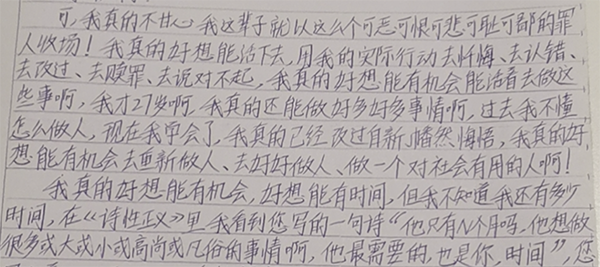 可，我真的不甘心我这辈子就以这么个可恶可恨可悲可耻可鄙的罪
人收场！我真的好想能活下去，用我的实际行动去忏悔、去认错、
去改过、去赎罪、去说对不起，我真的好想能有机会能活着去做这
些事啊，我才27岁啊，我真的还能做好多好多事情啊，过去我不懂
怎么做人，现在我学会了，我真的已经改过自新，幡然悔悟，我真的好
想能有机会去重新做人、去好好做人、做一个对社会有用的人啊！
我真的好想能有机会，好想能有时间，但我不知道我还有多少
时间，在《诗性正义》里我看到您写的一句诗“他只有N个月吗，他想做
很多或大或小或高尚或凡俗的事情啊，他最需要的，也是你，时间”，您